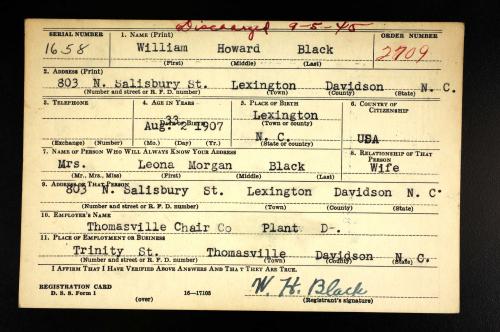 Discharged 9-5-45
SERIAL NUMBER 1. NAME (Print) ORDER NUMBER
1658 William Howard Black 2709
(First) (Middle) (Last)
2. ADDRESS (Print)
803 N. Salisbury St. Lexington Davidson N. C.
(Number and street or R. F. D. number) (Town) (County) (State)
3. TELEPHONE 4. AGE IN YEARS 5. PLACE OF BIRTH 6. COUNTRY OF CITIZENSHIP
33 Lexington
DATE OF BIRTH (Town or county)
Aug. 2 1907 N. C. USA
(Exchange) (Number) (Mo.) (Day) (Yr.) (State or country)
7. NAME OF PERSON WHO WILL ALWAYS KNOW YOUR ADDRESS 8. RELATIONSHIP OF THAT PERSON
Mrs. Leona Morgan Black Wife
(Mr., Mrs., Miss) (First) (Middle) (Last)
9. ADDRESS OF THAT PERSON
803 N. Salisbury St. Lexington Davidson N C.
(Number and street or R. F. D. number) (Town) (County) (State)
10. EMPLOYER'S NAME
Thomasville Chair Co Plant D-.
11. PLACE OF EMPLOYMENT OR BUSINESS
Trinity St. Thomasville Davidson N. C.
(Number and street or R. F. D. number) (Town) (County) (State)
I AFFIRM THAT I HAVE VERIFIED ABOVE ANSWERS AND THAT THEY ARE TRUE.
REGISTRATION CARD
D. S. S. Form 1 (over) 16—17105 W. H. Black
(Registrant's signature)